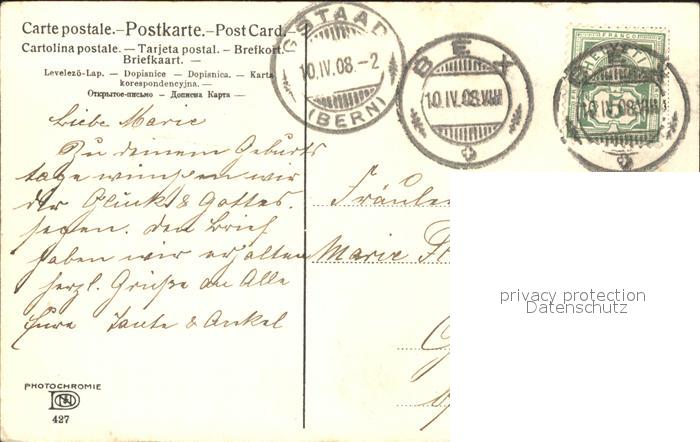 Carte postale.–Postkarte.–Post Card.–
Cartolina postale. – Tarjeta postal. – Brefkort.
Briefkaart. –
Levelező-Lap. – Dopisnice – Dopisnica. – Karta
korespondencyjna. –
Открытое-письмо – Дописна Карта –
GSTAAD
10.IV.08.–2
(BERN)
BEX
10.IV.08.VIII
FRANCO
HELVETIA
10.IV.08.VIII
5
Liebe Marie
Zu deinem Geburts
tage wünschen wir
dir Glück & Gottes.
segen. den Brief
haben wir erhalten
herzl. Grüße an Alle
Eure Tante & Onkel
Fräulein
Marie
privacy protection
Datenschutz
PHOTOCHROMIE
427